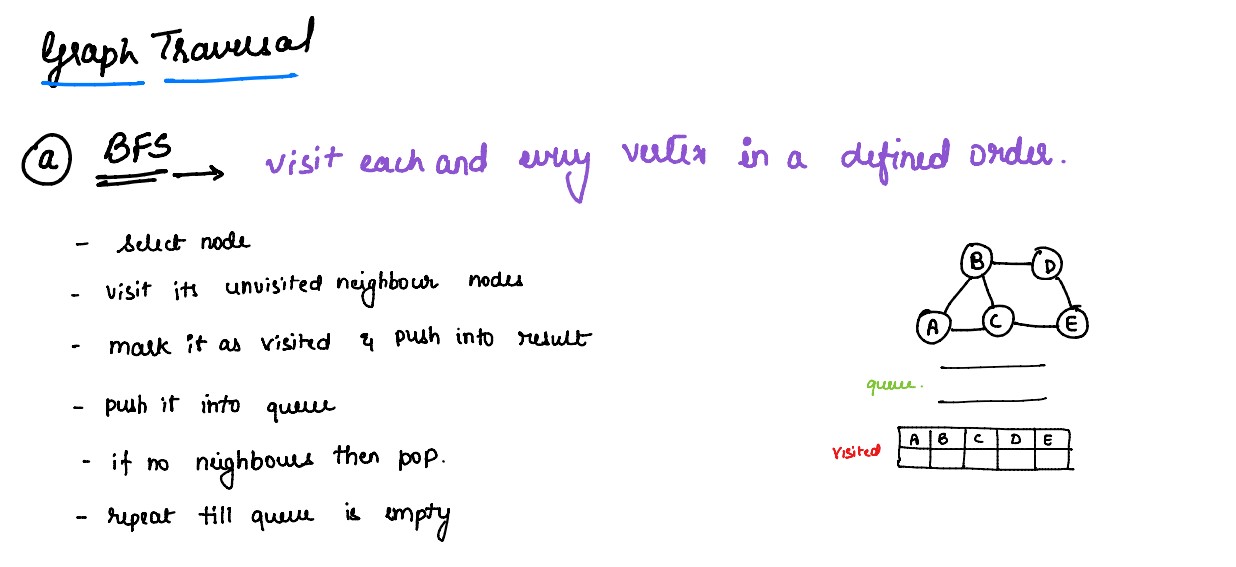 Graph Traversal
(a) BFS → visit each and every vertex in a defined order.
- select node
- visit its unvisited neighbour nodes
- mark it as visited & push into result
- push it into queue
- if no neighbours then pop.
- repeat till queue is empty
B D
A C E
queue.
A B C D E
Visited